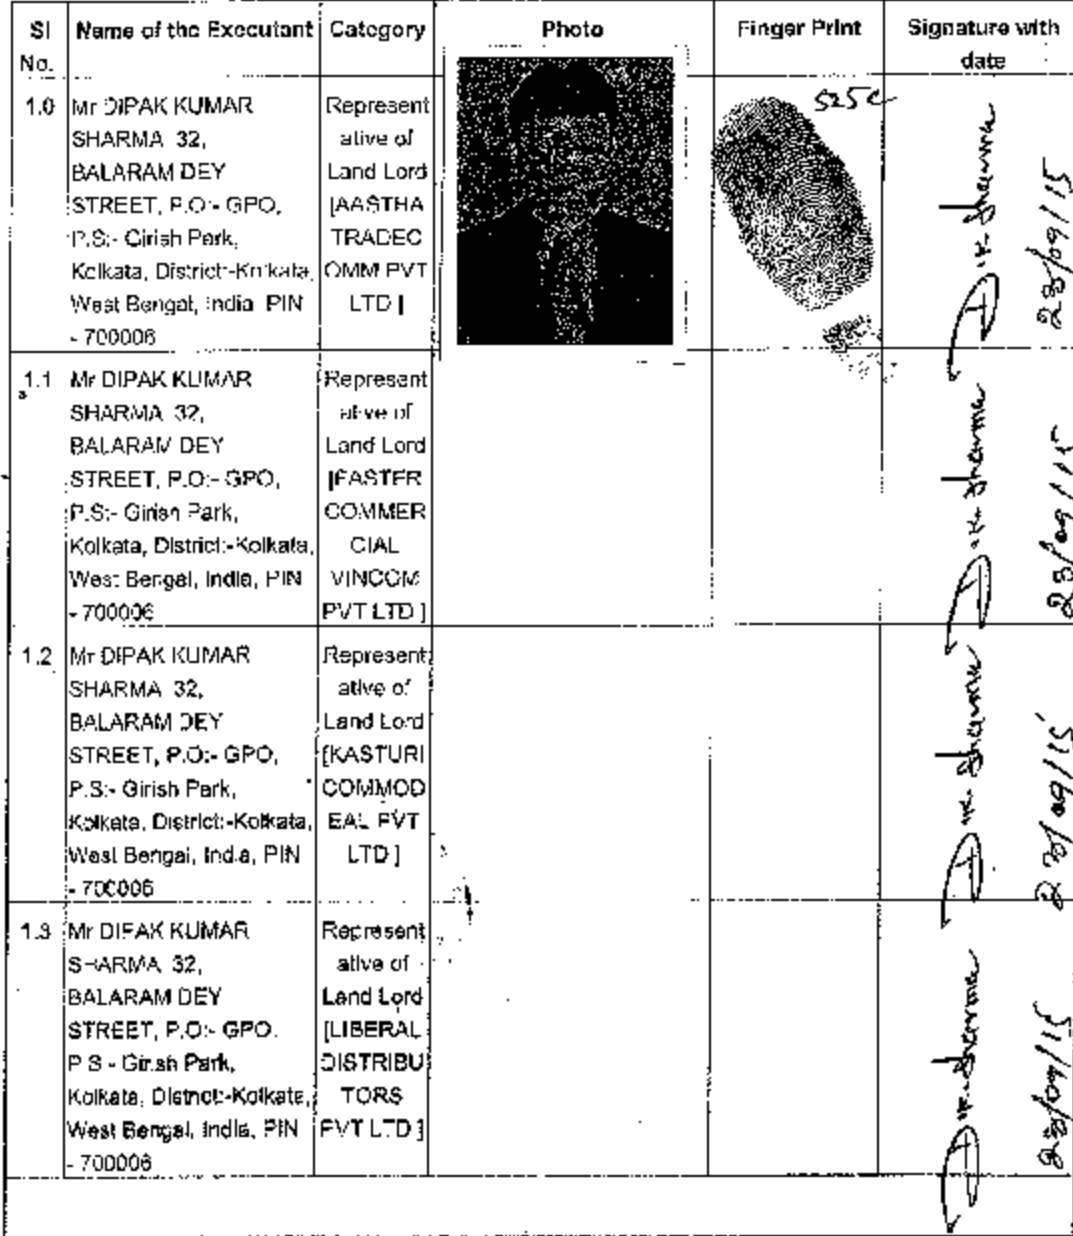 Sl No.
Name of the Executant
Category
Photo
Finger Print
Signature with date
1.0
Mr DIPAK KUMAR
SHARMA 32,
BALARAM DEY
STREET, P.O:- GPO,
P.S:- Girish Park,
Kolkata, District:-Kolkata,
West Bengal, India, PIN
- 700006
Represent
ative of
Land Lord
[AASTHA
TRADEC
OMM PVT
LTD ]
5250
D.K. Sharma
23/09/15
1.1
Mr DIPAK KUMAR
SHARMA 32,
BALARAM DEY
STREET, P.O:- GPO,
P.S:- Girish Park,
Kolkata, District:-Kolkata,
West Bengal, India, PIN
- 700006
Represent
ative of
Land Lord
[EASTER
COMMER
CIAL
VINCOM
PVT LTD ]
D.K. Sharma
23/09/15
1.2
Mr DIPAK KUMAR
SHARMA 32,
BALARAM DEY
STREET, P.O:- GPO,
P.S:- Girish Park,
Kolkata, District:-Kolkata,
West Bengal, India, PIN
- 700006
Represent
ative of
Land Lord
[KASTURI
COMMOD
EAL PVT
LTD ]
D.K. Sharma
23/09/15
1.3
Mr DIPAK KUMAR
SHARMA 32,
BALARAM DEY
STREET, P.O:- GPO,
P.S:- Girish Park,
Kolkata, District:-Kolkata,
West Bengal, India, PIN
- 700006
Represent
ative of
Land Lord
[LIBERAL
DISTRIBU
TORS
PVT LTD ]
D.K. Sharma
23/09/15